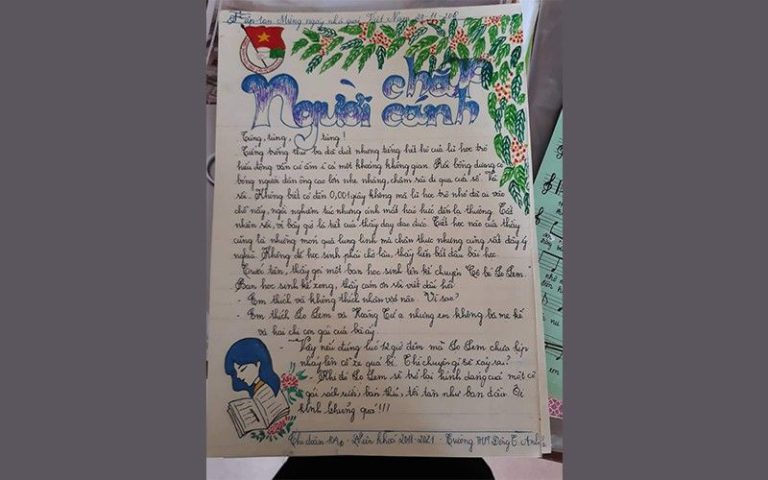 Mừng ngày nhà giáo Việt Nam 20-11-20
Người chắp cánh
Tùng, tùng, tùng!
Tiếng trống thứ ba đã dứt nhưng tiếng hét hò của lũ học trò
hiếu động vẫn cứ ầm ĩ cả một khoảng không gian. Rồi bỗng dưng có
bóng người đàn ông cao lớn nhẹ nhàng, chậm rãi đi qua cửa sổ. Và
rồi. Không biết có đến 0,001 giây không mà lũ học trò nhỏ đã ai vào
chỗ nấy, ngồi nghiêm túc nhưng ánh mắt háo hức đến lạ thường. Tất
nhiên rồi, vì bây giờ là tiết của thầy dạy đạo đức. Tiết học nào của thầy
cũng là những món quà lung linh mà chân thực nhưng cũng rất đầy ý
nghĩa. Không để học sinh phải chờ lâu, thầy liền bắt đầu bài học.
Trước tiên, thầy gọi một bạn học sinh lên kể chuyện "Cô bé Lọ Lem."
Bạn học sinh kể xong, thầy cảm ơn rồi viết dấu hỏi
- Em thích và không thích nhân vật nào. Vì sao?
- Em thích Lọ Lem và Hoàng Tử ạ nhưng em không bà mẹ kế
và hai chị con gái của bà ấy.
- Vậy nếu đúng lúc 12 giờ đêm mà Lọ Lem chưa kịp
nhảy lên cỗ xe quả bí. Thì chuyện gì sẽ xảy ra?
- Khi đó Lọ Lem sẽ trở lại hình dạng của một cô
gái rách rưới, bẩn thỉu, tồi tàn như ban đầu. Ôi
kinh khủng quá!!!
Chi đoàn 10A - Niên khoá 2018-2021 - Trường THPT